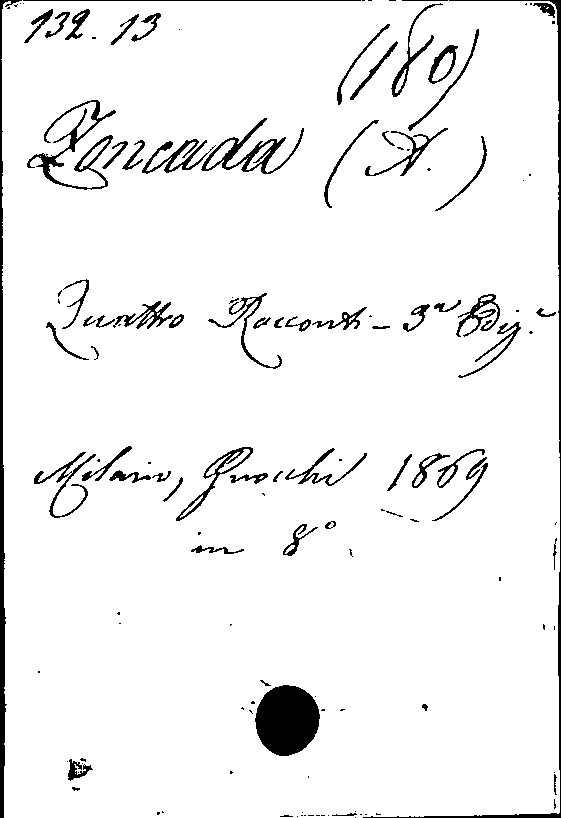 132. 13
(180)
Zoncada (A.)
Quattro Racconti - 3ª Ediz.e
Milano, Gnocchi 1869
in 8°